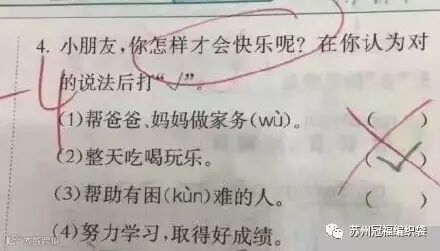 4. 小朋友,你怎样才会快乐呢? 在你认为对
的说法后打“√”。
-4
(1)帮爸爸、妈妈做家务(wù)。 ( )
(2)整天吃喝玩乐。 (√)
(3)帮助有困(kùn)难的人。 ( )
(4)努力学习,取得好成绩。
大数跨境
苏州冠福编织袋